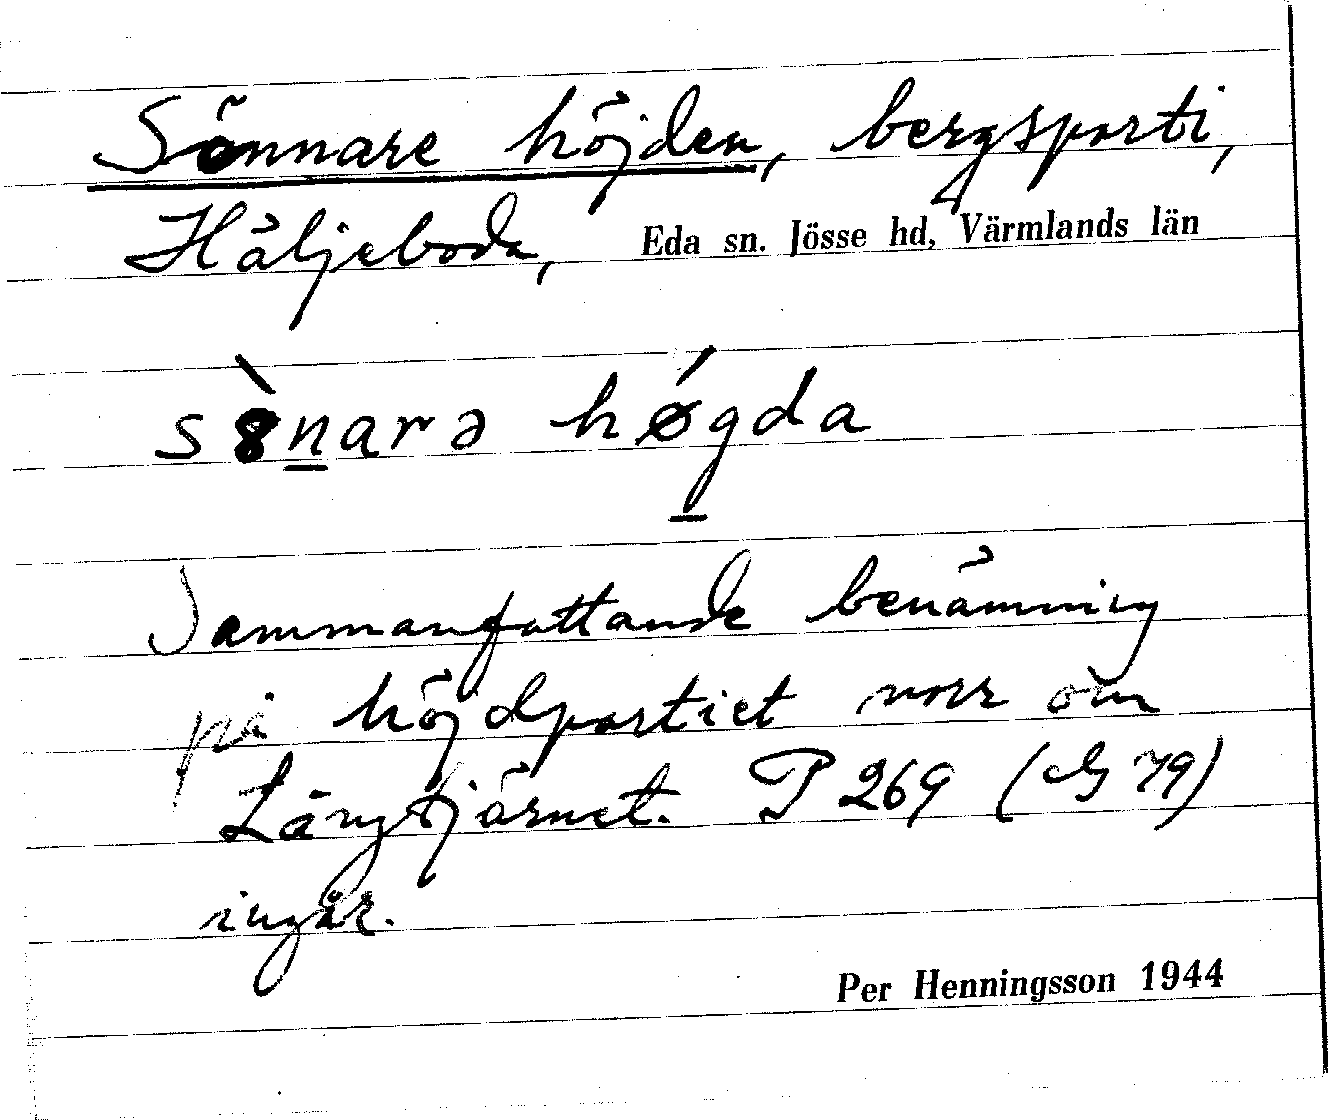 Sönnare höjden, bergsparti,
Håljeboda, Eda sn. Jösse hd, Värmlands län
sò̈narə høgda
Sammanfattande benämning
på höjdpartiet norr om
Långtjärnet. P 269 (G 79)
ingår.
Per Henningsson 1944